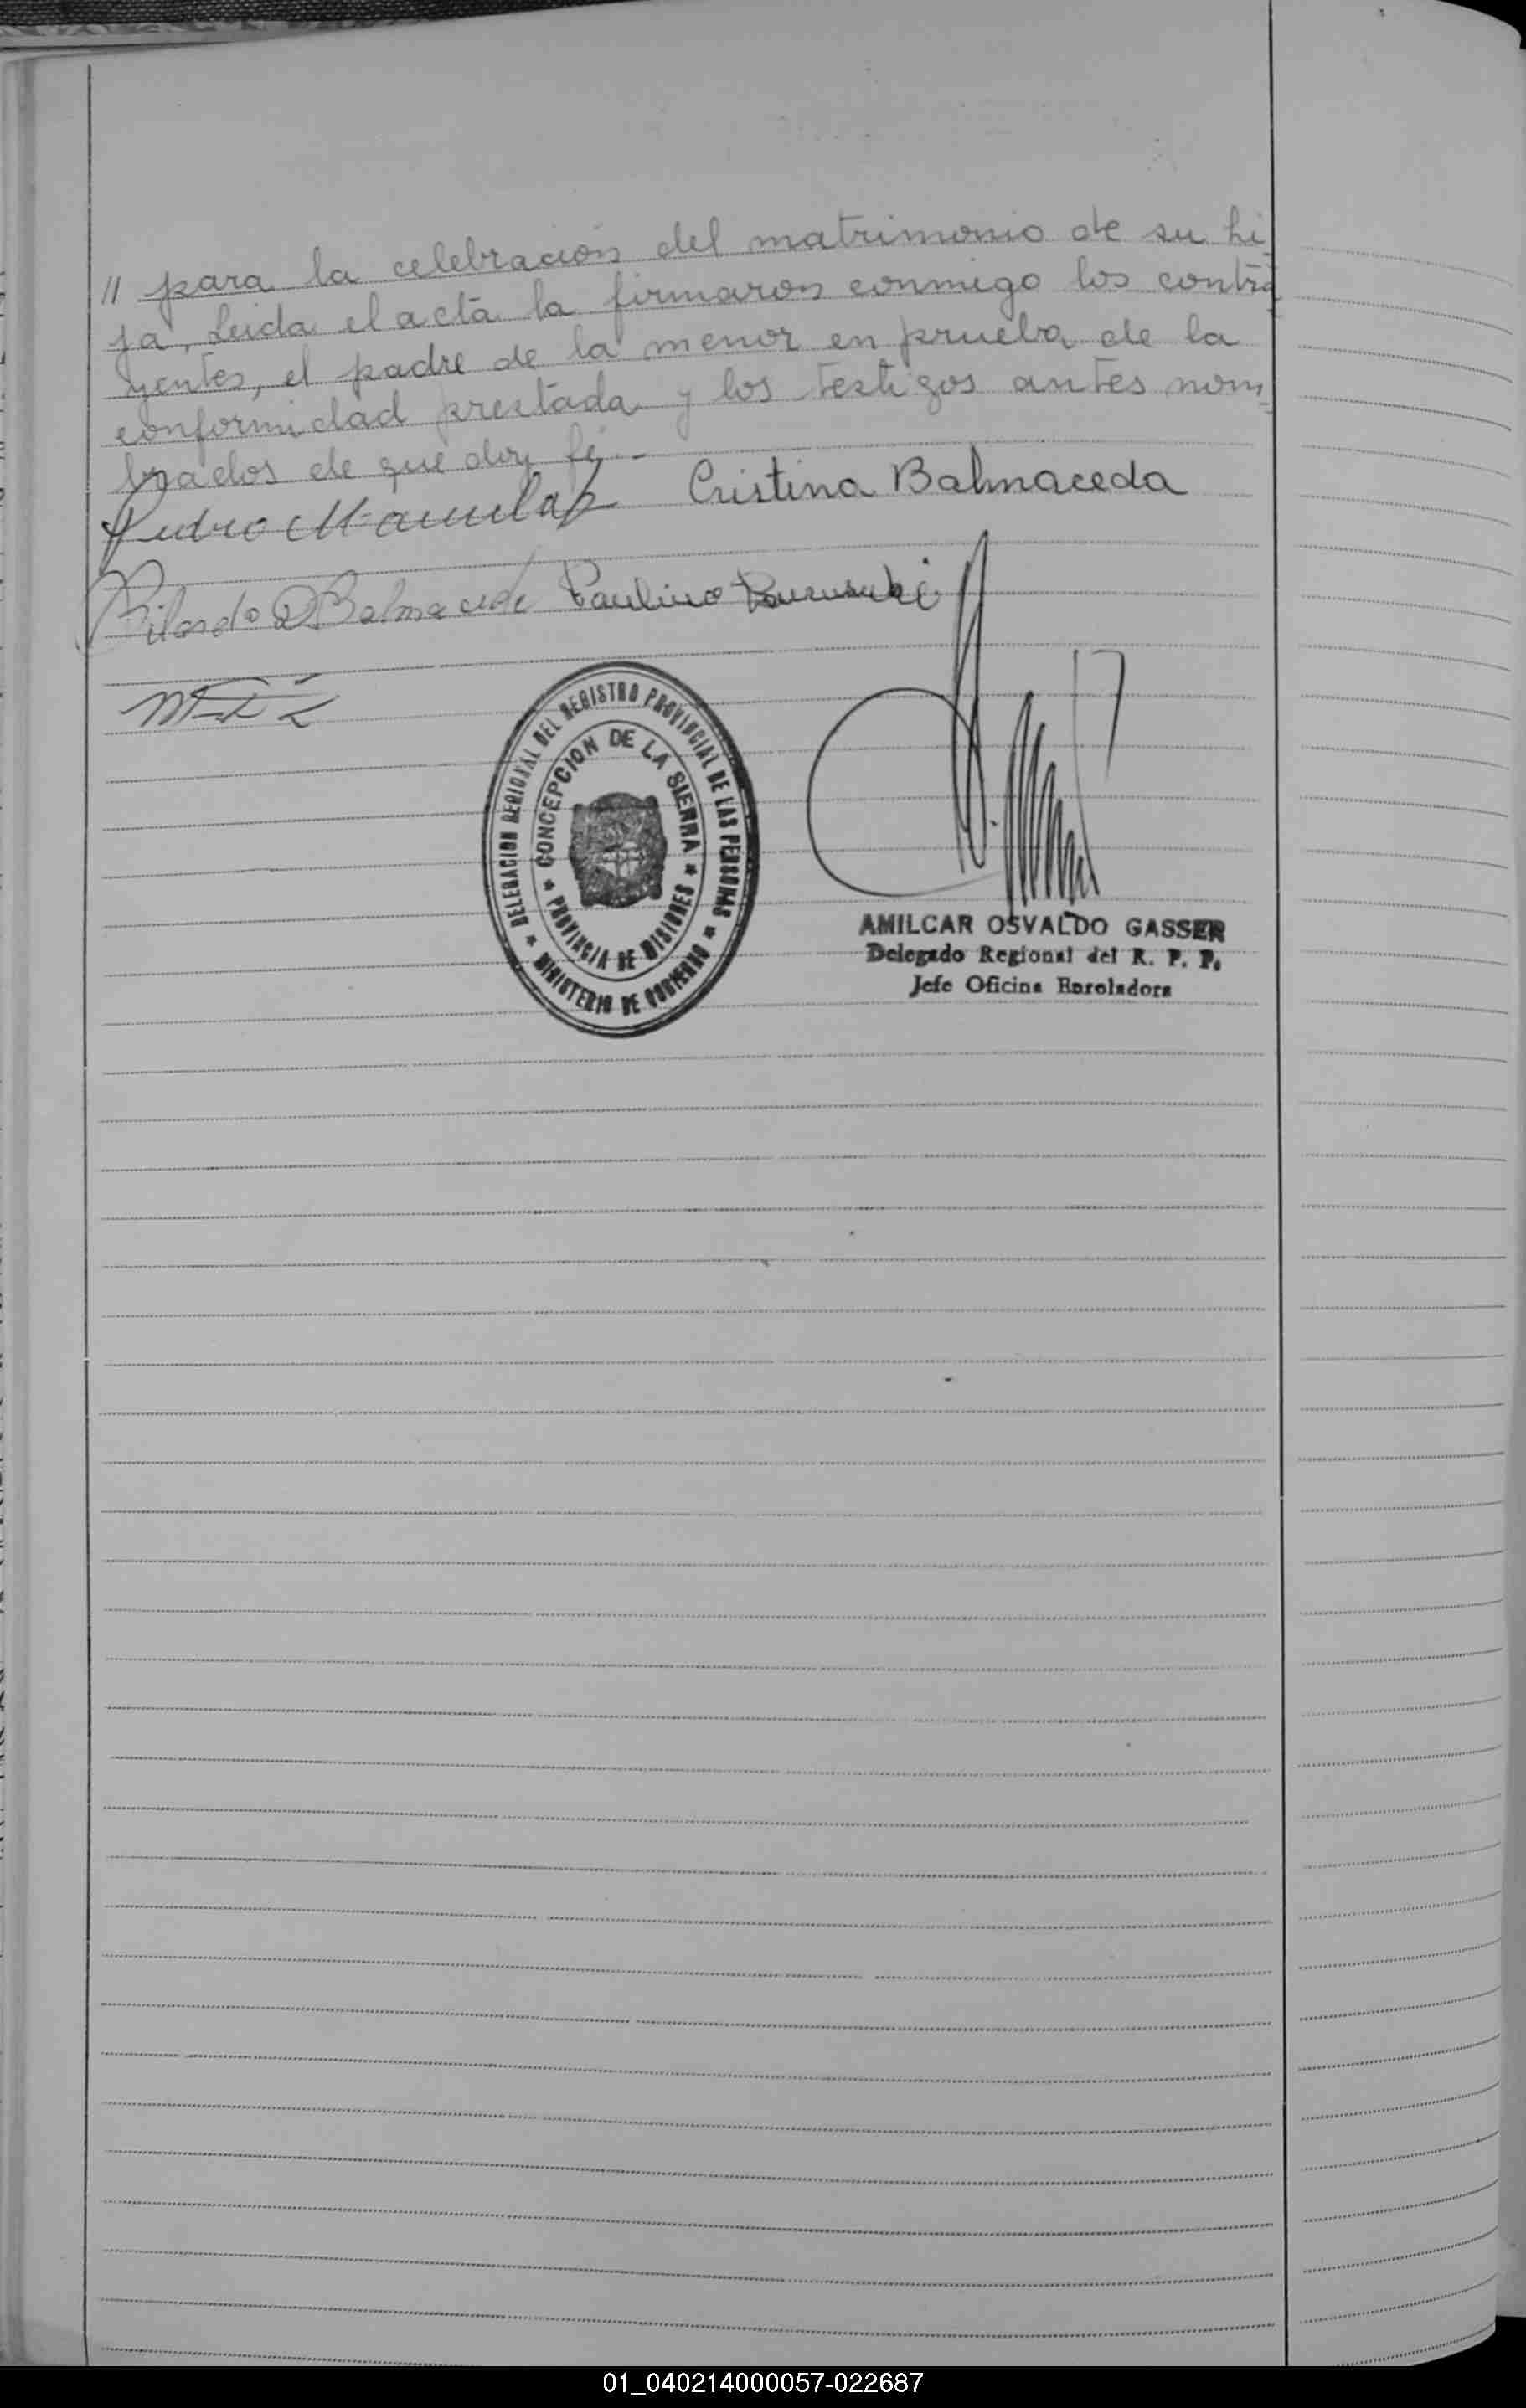 // para la celebración del matrimonio de su hi
ja, Leida el acta la firmaron conmigo los contra
yentes, el padre de la menor en prueba de la
conformidad prestada y los testigos antes nom
brados de que doy fé.-
Pedro Cristina Balmaceda
Balmaceda Paulino
DELEGACION REGIONAL DEL REGISTRO PROVINCIAL DE LAS PERSONAS
* MINISTERIO DE GOBIERNO *
CONCEPCION DE LA SIERRA
* PROVINCIA DE MISIONES *
AMILCAR OSVALDO GASSER
Delegado Regional del R. P. P.
Jefe Oficina Enroladora
01_040214000057-022687